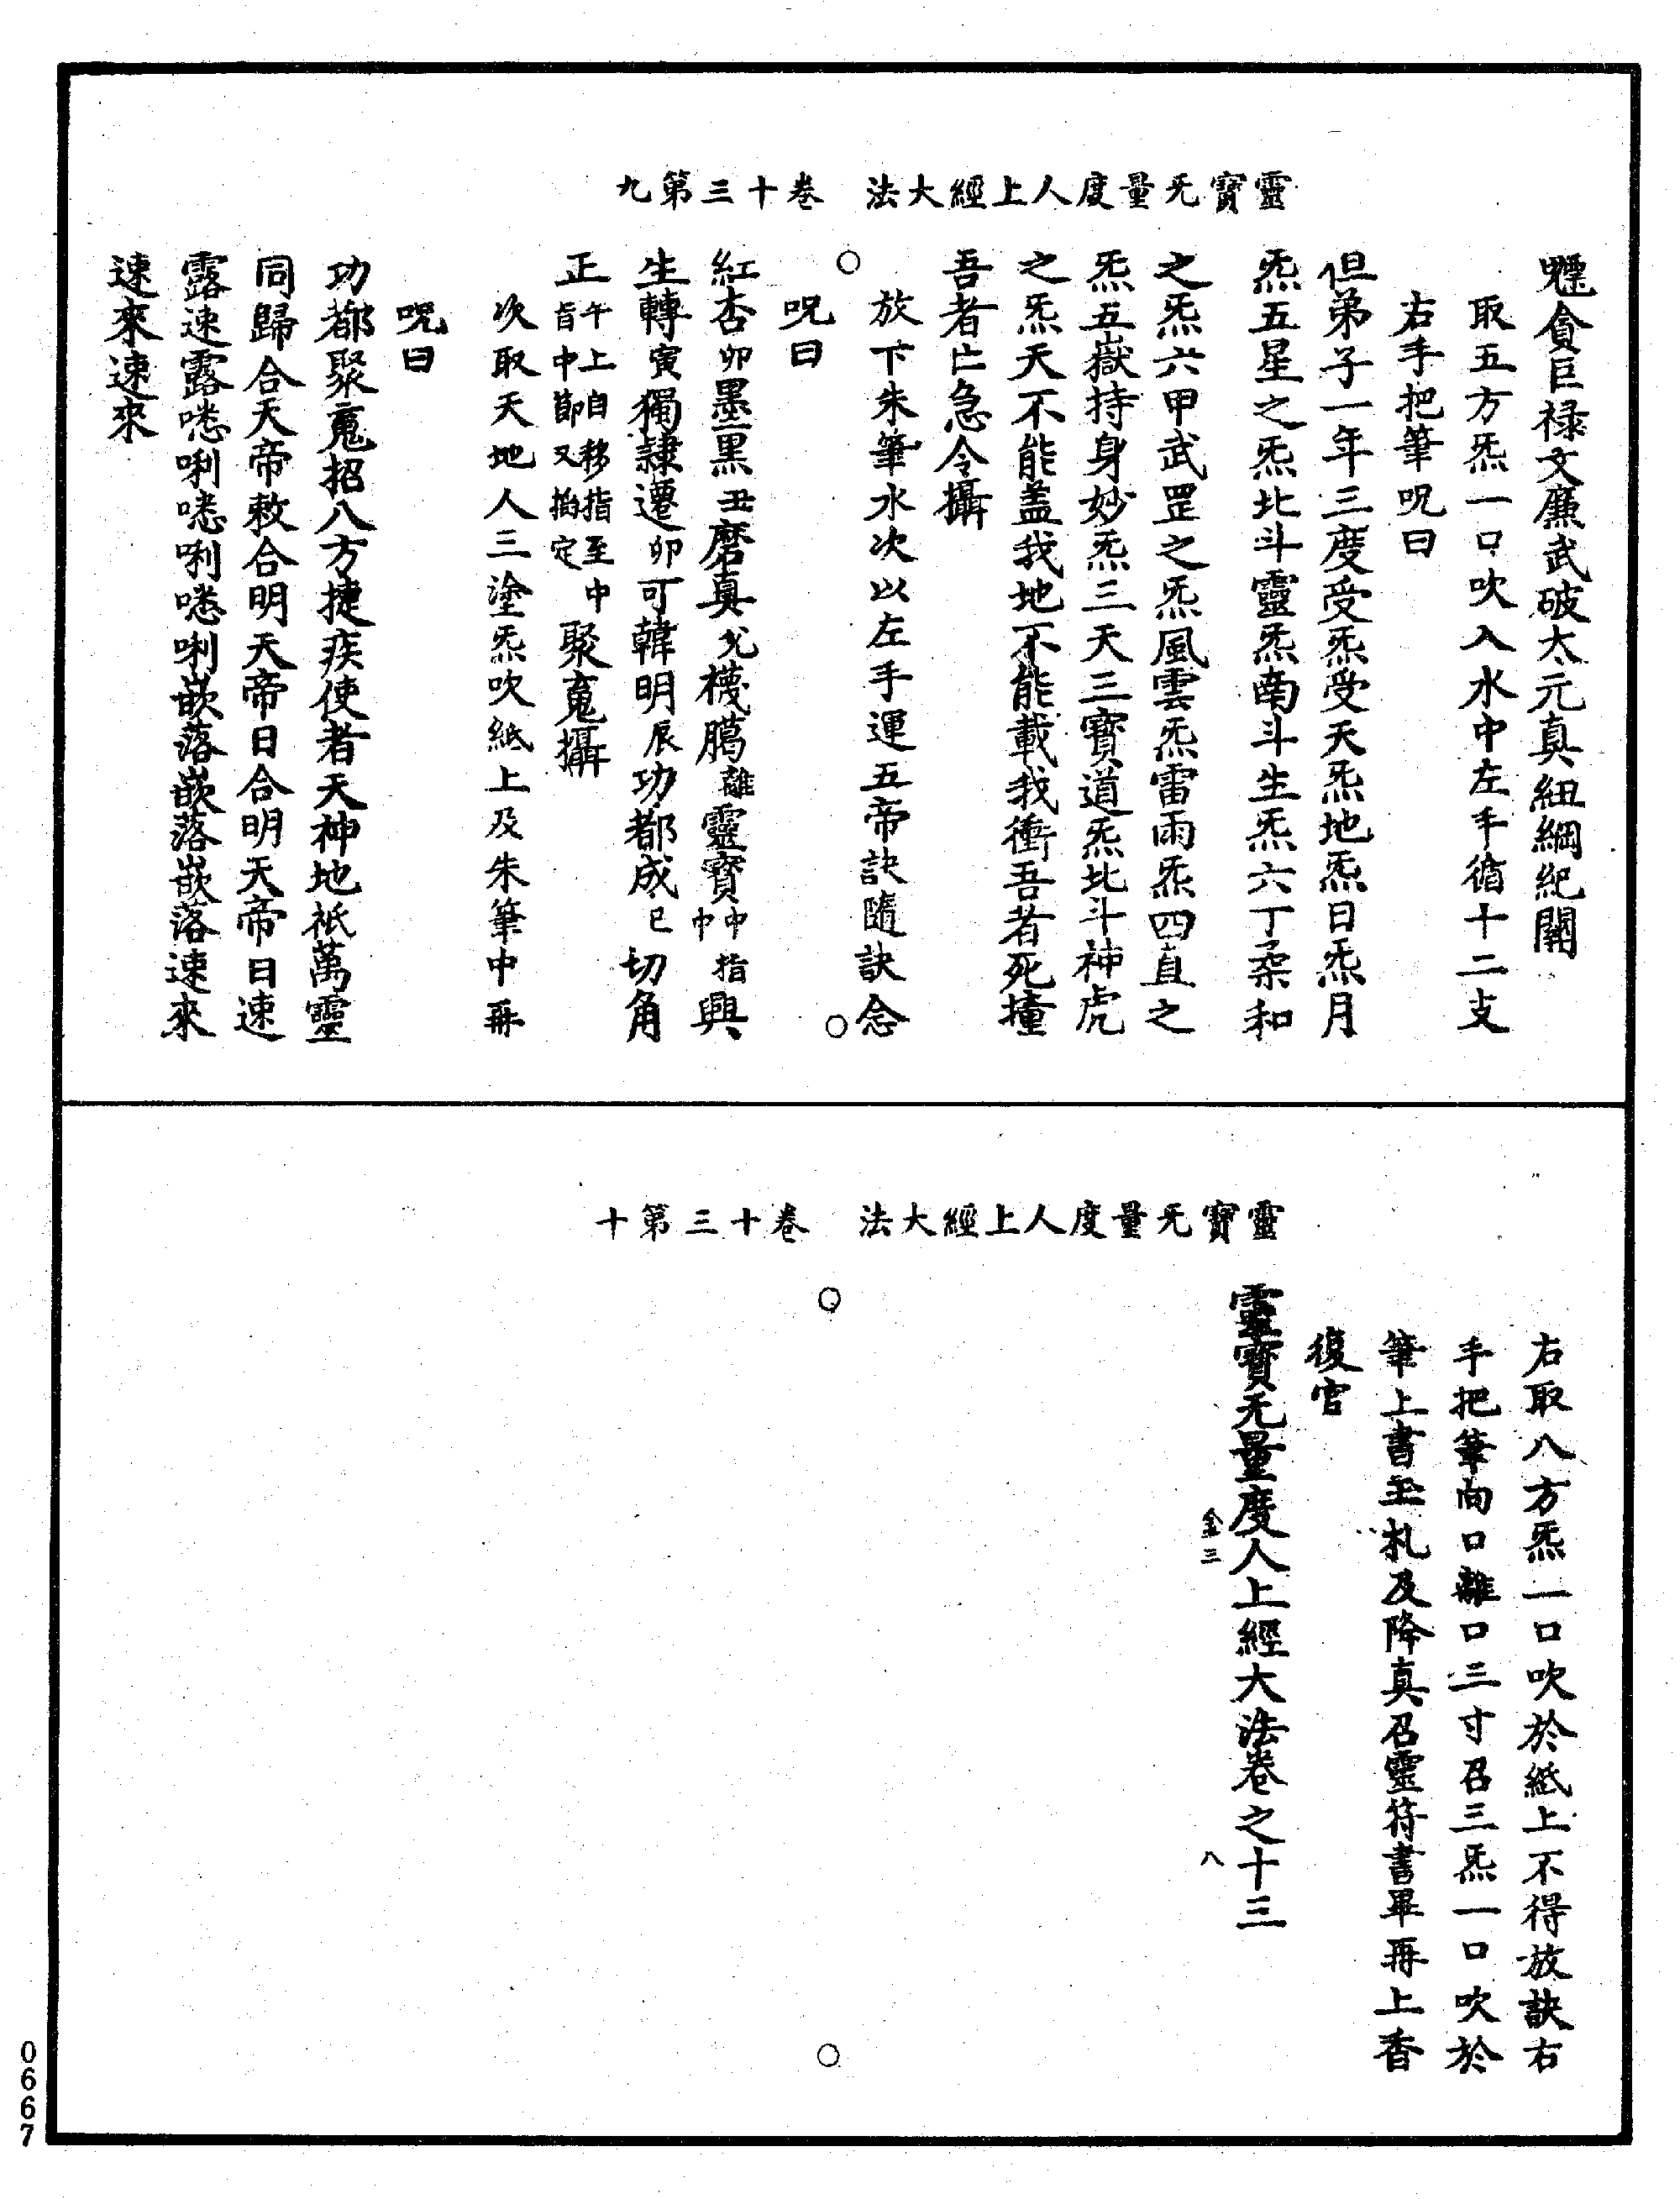 靈寶无量度人上經大法　卷十三第九
魒貪巨祿文廉武破太元真紐綱紀關
取五方炁一口吹入水中左手循十二支
右手把筆呪曰
但弟子一年三度受炁受天炁地炁日炁月
炁五星之炁北斗靈炁南斗生炁六丁柔和
之炁六甲武罡之炁風雲炁雷雨炁四直之
炁五嶽持身妙炁三天三寶道炁北斗神虎
之炁天不能蓋我地不能載我衝吾者死撞
吾者亡急令攝
放下朱筆水次以左手運五帝訣隨訣念
呪曰
紅杏卯墨黑丑磨真戈襪臈離靈寶中指中興
生轉寅獨隸遷卯可韓明辰功都成巳切角
正午上自移指至中指中節又掐定聚䰟攝
次取天地人三塗炁吹紙上及朱筆中再
呪曰
功都聚䰟招八方捷疾使者天神地祇萬靈
同歸合天帝敕合明天帝日合明天帝日速
露速露㗭唎㗭唎㗭唎嵌落嵌落嵌落速來
速來速來
靈寶无量度人上經大法　卷十三第十
右取八方炁一口吹於紙上不得放訣右
手把筆向口離口三寸召三炁一口吹於
筆上書玉札及降真召靈符書畢再上香
復官
靈寶无量度人上經大法卷之十三
金三
八
0667